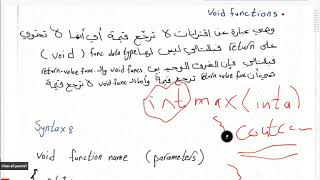 void functions.
وهي عبارة عن اقترانات لا ترجع قيمة أي أنها لا تحتوي
على return وبالتالي ليس لها func data type (void)
فبالتالي فإن الفرق الوحيد بين void funcs والـ return-value func
هي أن return value func ترجع قيمة وأما الـ void لا ترجع قيمة
int max (int a)
Cout<<
Syntax:
void function name (parameters)
{